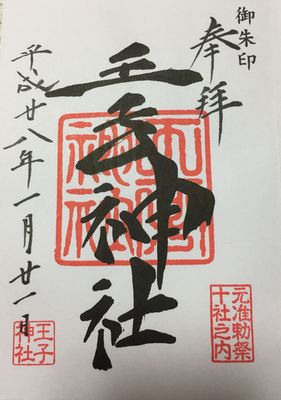 御朱印
奉拝
王子神社
平成廿八年一月廿一日
元准勅祭
十社之内
王子
神社